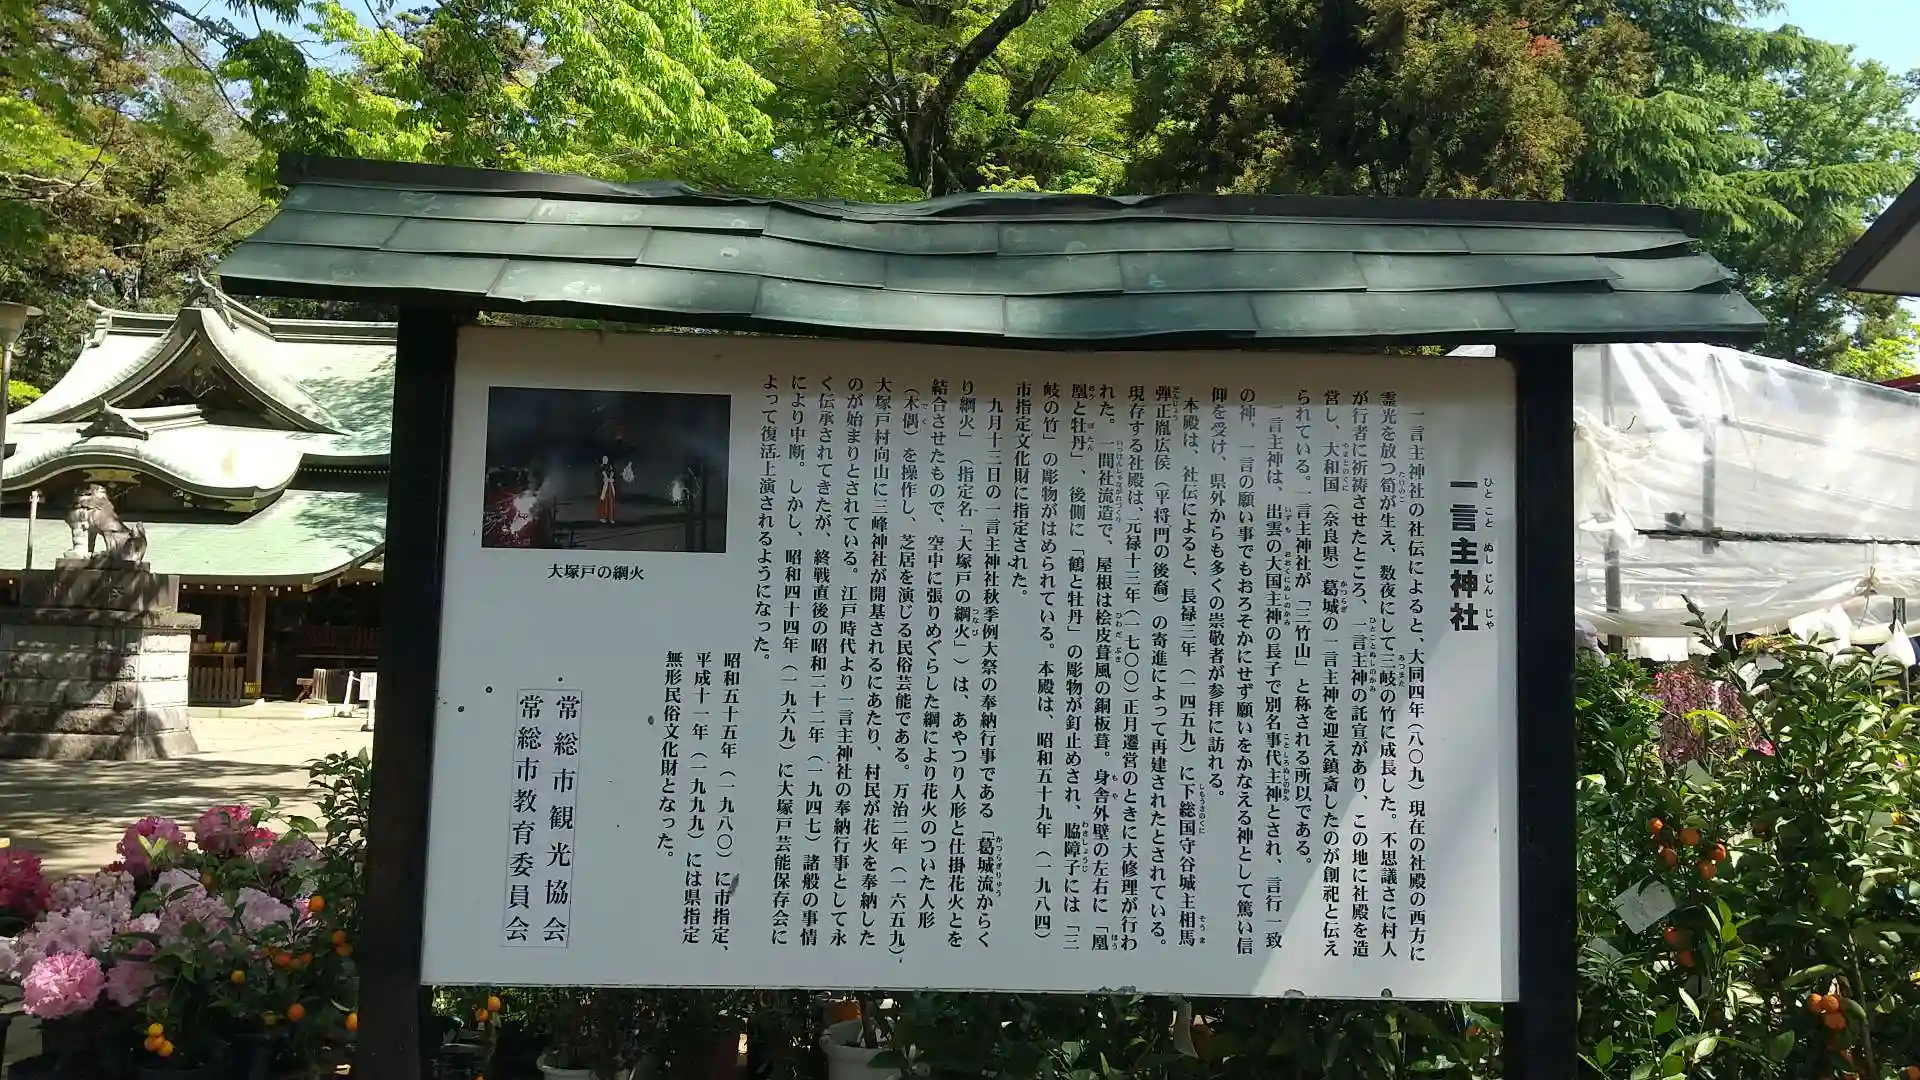 一言主神社
ひとことぬしじんじゃ
一言主神社の社伝によると、大同四年（八〇九）現在の社殿の西方に
霊光を放つ筍が生え、数夜にして三岐の竹に成長した。不思議さに村人
が行者に祈祷させたところ、一言主神の託宣があり、この地に社殿を造
営し、大和国（奈良県）葛城の一言主神を迎え鎮斎したのが創祀と伝え
られている。一言主神社が「三竹山」と称される所以である。
一言主神は、出雲の大国主神の長子で別名事代主神とされ、言行一致
の神、一言の願い事でもおろそかにせず願いをかなえる神として篤い信
仰を受け、県外からも多くの崇敬者が参拝に訪れる。
本殿は、社伝によると、長禄三年（一四五九）に下総国守谷城主相馬
弾正胤広侯（平将門の後裔）の寄進によって再建されたとされている。
現存する社殿は、元禄十三年（一七〇〇）正月遷営のときに大修理が行わ
れた。一間社流造で、屋根は桧皮葺風の銅板葺。身舎外壁の左右に「鳳
凰と牡丹」、後側に「鶴と牡丹」の彫物が釘止めされ、脇障子には「三
岐の竹」の彫物がはめられている。本殿は、昭和五十九年（一九八四）
市指定文化財に指定された。
九月十三日の一言主神社秋季例大祭の奉納行事である「葛城流からく
り綱火」（指定名「大塚戸の綱火」）は、あやつり人形と仕掛花火とを
結合させたもので、空中に張りめぐらした綱により花火のついた人形
（木偶）を操作し、芝居を演じる民俗芸能である。万治二年（一六五九）、
大塚戸村向山に三峰神社が開基されるにあたり、村民が花火を奉納した
のが始まりとされている。江戸時代より一言主神社の奉納行事として永
く伝承されてきたが、終戦直後の昭和二十二年（一九四七）諸般の事情
により中断。しかし、昭和四十四年（一九六九）に大塚戸芸能保存会に
よって復活上演されるようになった。
昭和五十五年（一九八〇）に市指定、
平成十一年（一九九九）には県指定
無形民俗文化財となった。
大塚戸の綱火
常総市観光協会
常総市教育委員会